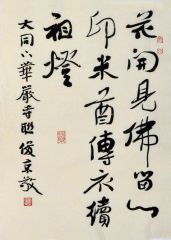 花開見佛留心
印米酋傳衣續
祖燈
大同下華嚴寺聯俊京敬